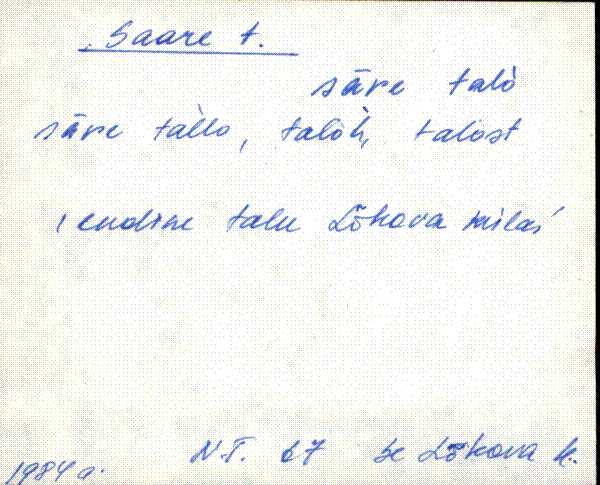 Saare t.
sāre talo̬
sāre tallo, talo̬h, talo̬st
, endine talu Lõkova külas
1984 a. N.T. 67 Se Lõkova k.